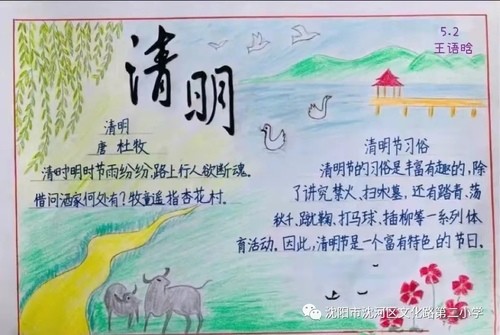 5.2
王语晗
清明
清明
唐 杜牧
清时明时节雨纷纷,路上行人欲断魂。
借问酒家何处有?牧童遥指杏花村.
清明节习俗
清明节的习俗是丰富有趣的,除
了讲究禁火、扫木墓,还有踏青、荡
秋千、蹴鞠、打马球、插柳等一系列体
育活动。因此,清明节是一个富有特色的节日。
沈阳市沈河区文化路第二小学